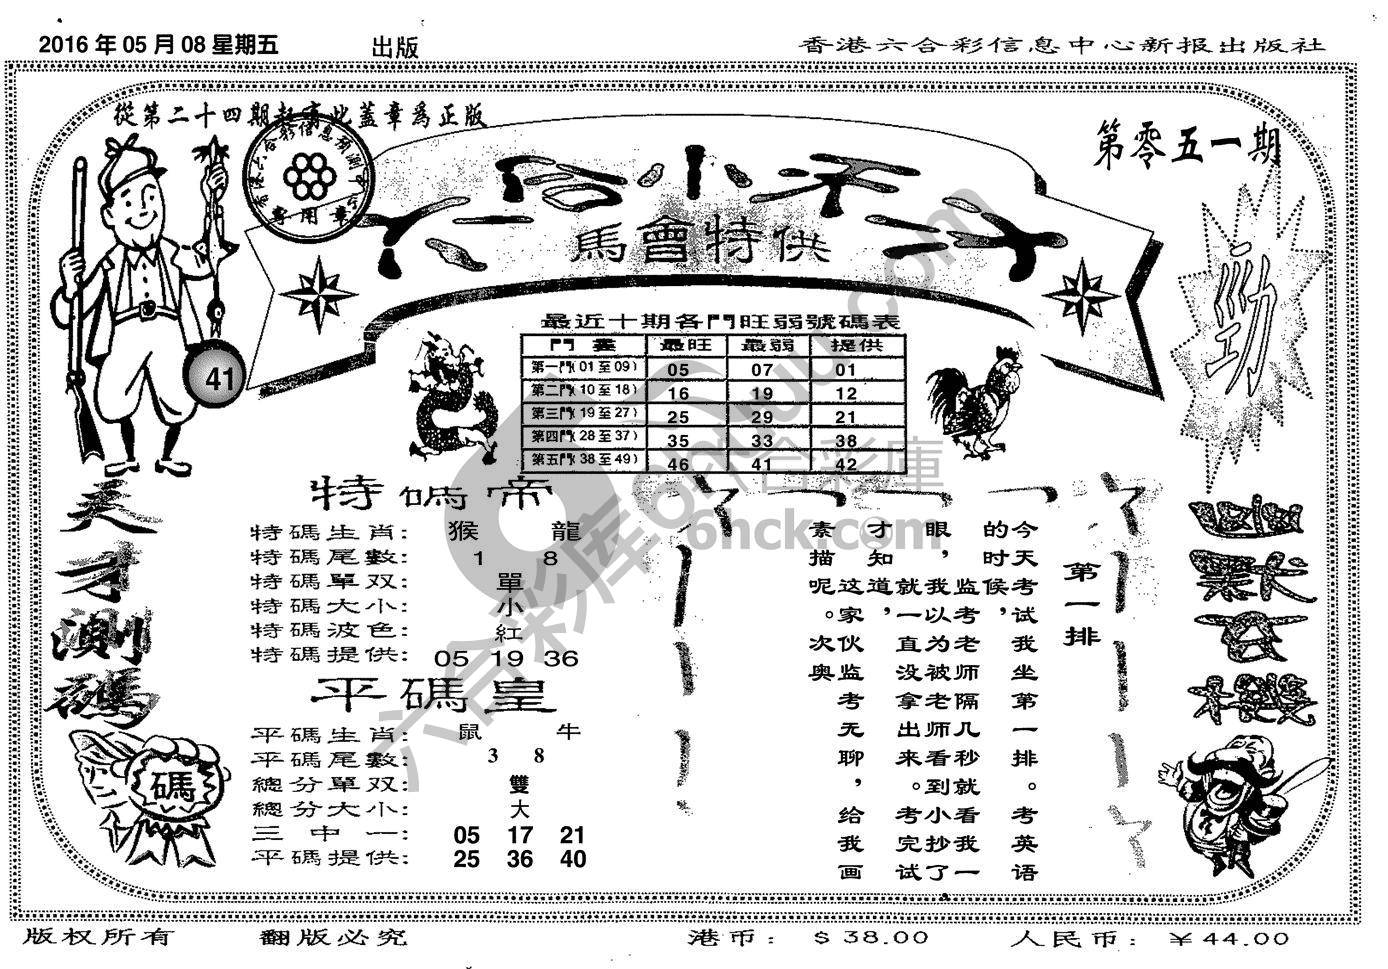 2016 年 05 月 08 星期五 出版 香港六合彩信息中心新报出版社
從第二十四期起寄此蓋章爲正版
第零五一期
六合小天才
馬會特供
專用章
勁
41
最近十期各門旺弱號碼表
門盡 最旺 最弱 提供
第一門(01至09) 05 07 01
第二門(10至18) 16 19 12
第三門(19至27) 25 29 21
第四門(28至37) 35 33 38
第五門(38至49) 46 41 42
天才測碼
特碼帝
特碼生肖: 猴 龍
特碼尾數: 1 8
特碼單双: 單
特碼大小: 小
特碼波色: 紅
特碼提供: 05 19 36
平碼皇
平碼生肖: 鼠 牛
平碼尾數: 3 8
總分單双: 雙
總分大小: 大
三中一: 05 17 21
平碼提供: 25 36 40
碼
第一排
今天考试我坐第一排。考英语
的时候,监考老师隔几秒就看我一
眼,我以为被老师看到小抄了
就一直没拿出来。考完试
才知道,这家伙监考无聊,给我画
素描呢。次奥
版权所有 翻版必究 港币: $38.00 人民币: ¥44.00
六合彩库 6hhuu.com
六合彩庫
6hck.com